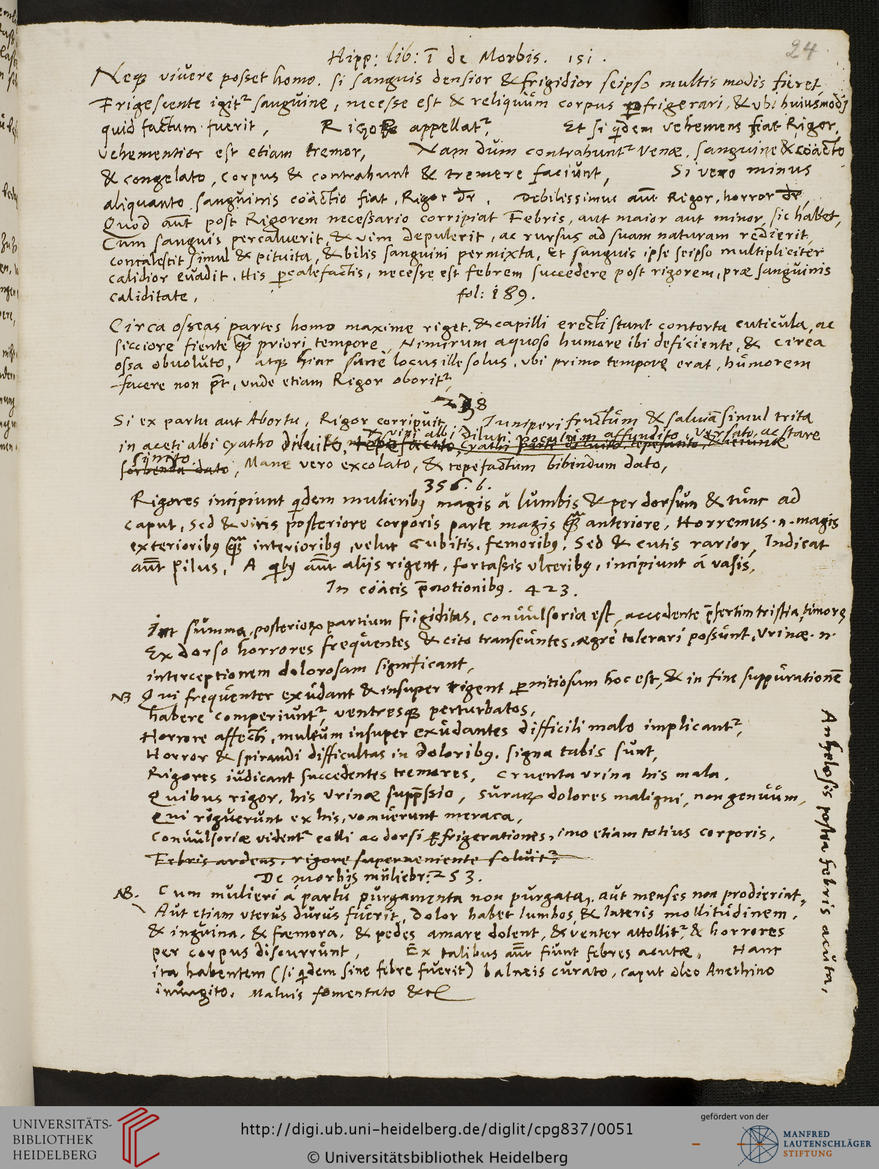 24
Hipp: lib: ī de Morbis. 151.
Neq; vivere posset homo. si sanguis densior & frigidior seipso multis modis fieret,
Frigescente igit² sanguine, necesse est & reliquūm corpus pfrigerari, & vbi huiusmodj
quid factum fuerit, Rigor appellat², Et si qdem vehemens fiat Rigor,
vehementior est etiam tremor, Nam dum contrahunt² Venæ, sanguine & coacto
& congelato, corpus & contrahunt & tremere faciunt, Si vero minus
aliquanto sanguinis coactio fiat, Rigor dr, Debilissimus aut Rigor, horror dr,
Quod aut post Rigorem necessario corripiat Febris, aut maior aut minor, sic habet,
Cum sanguis percaluerit, & vim depulerit, ac rursus ad suam naturam redierit,
concalescit simul & pituita, & bilis sanguini permixta, Et sanguis ipse seipso multipliciter
calidior evadit. His pcalefactis, necesse est febrem succedere post rigorem, præ sanguinis
caliditate, fol: 189.
Circa osseas partes homo maxime riget. & capilli erecti stant contorta cuticula, ac
sicciore fiente q̃ priori tempore, Nimirum aquoso humore ibi deficiente, & circa
ossa obvoluto, atq; hiac sane locus ille solus, vbi primo tempore erat, humorem
facere non pt, vnde etiam Rigor oborit²
238
Si ex partu aut Abortu, Rigor corripuit, Iuniperi fructum & salviā simul trita
in aceti albi cyatho diluito, vini albi diluti poculum affundito, versato, ac stare
sinito, Mane vero excolato, & tepefactum bibendum dato,
356. b.
Rigores incipiunt qdem mulierib; magis á lumbis & per dorsum & tunc ad
caput, sed & viris posteriore corporis parte magis q̃ anteriore, Horremus .n. magis
exteriorib; q̃ interiorib;, velut Cubitis, femorib;, Sed & cutis rarior, Indicat
aut Pilus, A qb; aut alijs rigent, fortassis vlcerib;, incipiunt á vasis,
In coacis pnotionib;. 423.
In summa, posterioꝝ partium frigiditas, convulsoria est, accedente psertim tristia, timore
Ex dorso horrores frequentes & cito transeuntes, ægre tolerari possunt, Vrinæ .n.
interceptionem dolorosam significant,
NB Qui frequenter exudant & insuper rigent, pnitiosum hoc est, & in fine suppurationē
habere comperiunt², ventresq; perturbatos,
Horrore affecti, multum insuper exudantes difficili malo implicant²,
Horror & spirandi difficultas in doloribq;. signa tabis sunt,
Rigores iudicant succedentes tremores, Cruenta vrina his mala,
Quibus rigor, his vrinæ suppssio, suraꝝ dolores maligni, non genuum,
Qui riguerunt ex his, vomuerunt meraca,
Convulsoriæ vident² colli ac dorsi pfrigerationes, imo etiam totius corporis,
Febris ardens, rigore superveniente solvit²,
De morbis muliebr: 253.
NB. Cum mulieri á partu purgamenta non purgata, aut menses non prodierint,
Aut etiam vterus durus fuerit, dolor habet lumbos, & lateris mollitudinem,
& inguina, & fæmora, & pedes amare dolent, & venter attollit² & horrores
per corpus discurrunt, Ex talibus aut fiunt febres acutæ, Hanc
ita habentem (si qdem sine febre fuerit) balneis curato, caput oleo Anethino
inungito, Malvis fomentato &c
postea febris acuta,
UNIVERSITÄTS-
BIBLIOTHEK
HEIDELBERG
http://digi.ub.uni-heidelberg.de/diglit/cpg837/0051
© Universitätsbibliothek Heidelberg
gefördert von der
MANFRED
LAUTENSCHLÄGER
STIFTUNG